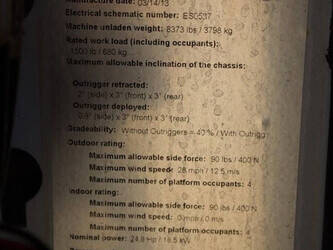 Manufacture date: 03/14/13
Electrical schematic number: ES0537
Machine unladen weight: 8373 lbs / 3798 kg
Rated work load (including occupants):
1500 lb / 680 kg
Maximum allowable inclination of the chassis:
Outrigger retracted:
2° (side) x 3° (front) x 3° (rear)
Outrigger deployed:
(side) x 3° (front) x 3° (rear)
Gradeability: Without Outriggers = 40% / With Outrigg
Outdoor rating:
Maximum allowable side force: 90 lbs / 400 N
Maximum wind speed: 28 mph / 12.5 m/s
Maximum number of platform occupants: 4
Indoor rating:
Maximum allowable side force: 90 lbs / 400 N
Maximum wind speed: 0 mph / 0 m/s
Maximum number of platform occupants: 4
Nominal power: 24.8 Hp / 18.5 kW